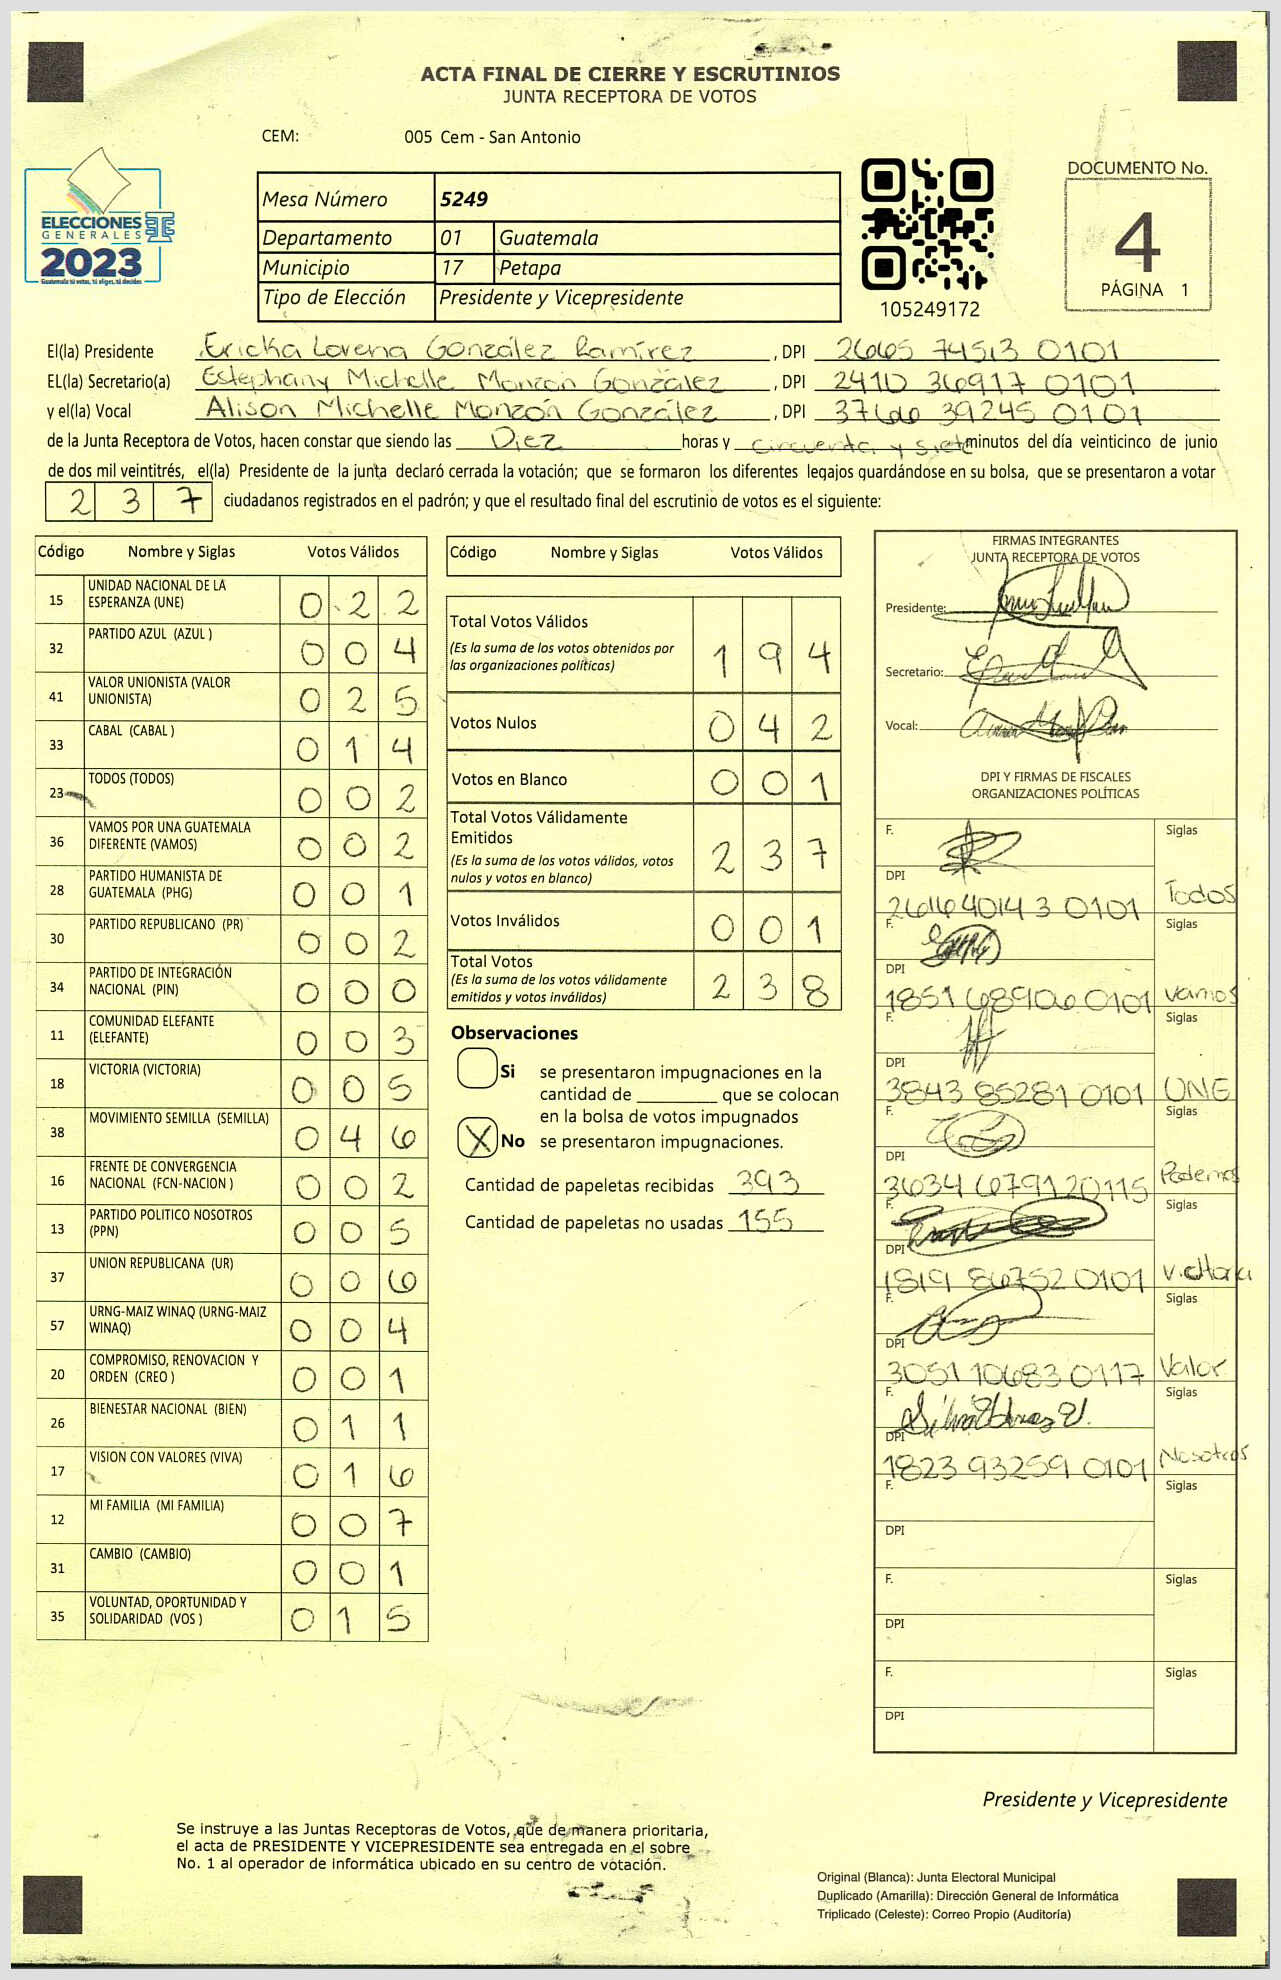 ACTA FINAL DE CIERRE Y ESCRUTINIOS
JUNTA RECEPTORA DE VOTOS
CEM: 005 Cem - San Antonio
ELECCIONES
GENERALES
2023
Guatemala tú votas, tú eliges, tú decides
Mesa Número 5249
Departamento 01 Guatemala
Municipio 17 Petapa
Tipo de Elección Presidente y Vicepresidente
105249172
DOCUMENTO No.
4
PÁGINA 1
El(la) Presidente Ericka Lorena González Ramírez, DPI 2665 74513 0101
EL(la) Secretario(a) Estephany Michelle Monzón González, DPI 2410 36917 0101
y el(la) Vocal Alison Michelle Monzón González, DPI 3766 39245 0101
de la Junta Receptora de Votos, hacen constar que siendo las Diez horas y cincuenta y siete minutos del día veinticinco de junio
de dos mil veintitrés, el(la) Presidente de la junta declaró cerrada la votación; que se formaron los diferentes legajos guardándose en su bolsa, que se presentaron a votar
2 3 7 ciudadanos registrados en el padrón; y que el resultado final del escrutinio de votos es el siguiente:
Código Nombre y Siglas Votos Válidos
15 UNIDAD NACIONAL DE LA ESPERANZA (UNE) 0 2 2
32 PARTIDO AZUL (AZUL ) 0 0 4
41 VALOR UNIONISTA (VALOR UNIONISTA) 0 2 5
33 CABAL (CABAL ) 0 1 4
23 TODOS (TODOS) 0 0 2
36 VAMOS POR UNA GUATEMALA DIFERENTE (VAMOS) 0 0 2
28 PARTIDO HUMANISTA DE GUATEMALA (PHG) 0 0 1
30 PARTIDO REPUBLICANO (PR) 0 0 2
34 PARTIDO DE INTEGRACIÓN NACIONAL (PIN) 0 0 0
11 COMUNIDAD ELEFANTE (ELEFANTE) 0 0 3
18 VICTORIA (VICTORIA) 0 0 5
38 MOVIMIENTO SEMILLA (SEMILLA) 0 4 6
16 FRENTE DE CONVERGENCIA NACIONAL (FCN-NACION ) 0 0 2
13 PARTIDO POLITICO NOSOTROS (PPN) 0 0 5
37 UNION REPUBLICANA (UR) 0 0 6
57 URNG-MAIZ WINAQ (URNG-MAIZ WINAQ) 0 0 4
20 COMPROMISO, RENOVACION Y ORDEN (CREO ) 0 0 1
26 BIENESTAR NACIONAL (BIEN) 0 1 1
17 VISION CON VALORES (VIVA) 0 1 6
12 MI FAMILIA (MI FAMILIA) 0 0 7
31 CAMBIO (CAMBIO) 0 0 1
35 VOLUNTAD, OPORTUNIDAD Y SOLIDARIDAD (VOS ) 0 1 5
Código Nombre y Siglas Votos Válidos
Total Votos Válidos
(Es la suma de los votos obtenidos por las organizaciones políticas) 1 9 4
Votos Nulos 0 4 2
Votos en Blanco 0 0 1
Total Votos Válidamente Emitidos
(Es la suma de los votos válidos, votos nulos y votos en blanco) 2 3 7
Votos Inválidos 0 0 1
Total Votos
(Es la suma de los votos válidamente emitidos y votos inválidos) 2 3 8
Observaciones
Si se presentaron impugnaciones en la
cantidad de ________ que se colocan
en la bolsa de votos impugnados
X No se presentaron impugnaciones.
Cantidad de papeletas recibidas 393
Cantidad de papeletas no usadas 155
FIRMAS INTEGRANTES
JUNTA RECEPTORA DE VOTOS
Presidente:
Secretario:
Vocal:
DPI Y FIRMAS DE FISCALES
ORGANIZACIONES POLÍTICAS
F. Siglas
DPI 2616 4014 3 0101 Todos
F. Siglas
DPI 1851 68906 0101 Vamos
F. Siglas
DPI 3843 85281 0101 UNE
F. Siglas
DPI 3634 67912 0115 Podemos
F. Siglas
DPI 1819 86752 0101 Victoria
F. Siglas
DPI 3051 10683 0117 Valor
F. Siglas
DPI 1823 93259 0101 Nosotros
F. Siglas
DPI
F. Siglas
DPI
F. Siglas
DPI
Presidente y Vicepresidente
Se instruye a las Juntas Receptoras de Votos, que de manera prioritaria,
el acta de PRESIDENTE Y VICEPRESIDENTE sea entregada en el sobre
No. 1 al operador de informática ubicado en su centro de votación.
Original (Blanca): Junta Electoral Municipal
Duplicado (Amarilla): Dirección General de Informática
Triplicado (Celeste): Correo Propio (Auditoría)